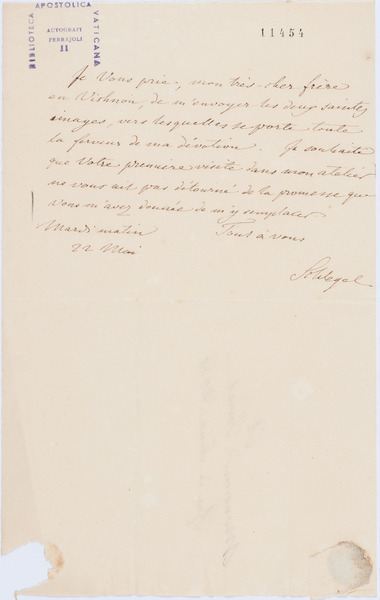 BIBLIOTECA APOSTOLICA VATICANA
AUTOGRAFI
FERRAJOLI
11
11454
Je vous prie, mon très-cher frère
en Vishnou, de m'envoyer les deux saintes
images, vers lesquelles se porte toute
la ferveur de ma dévotion. Je souhaite
que votre première visite dans mon atelier
ne vous ait pas détourné de la promesse que
vous m'avez donnée de m'y remplacer.
Mardi matin Tout à vous
22 Mai
Schlegel